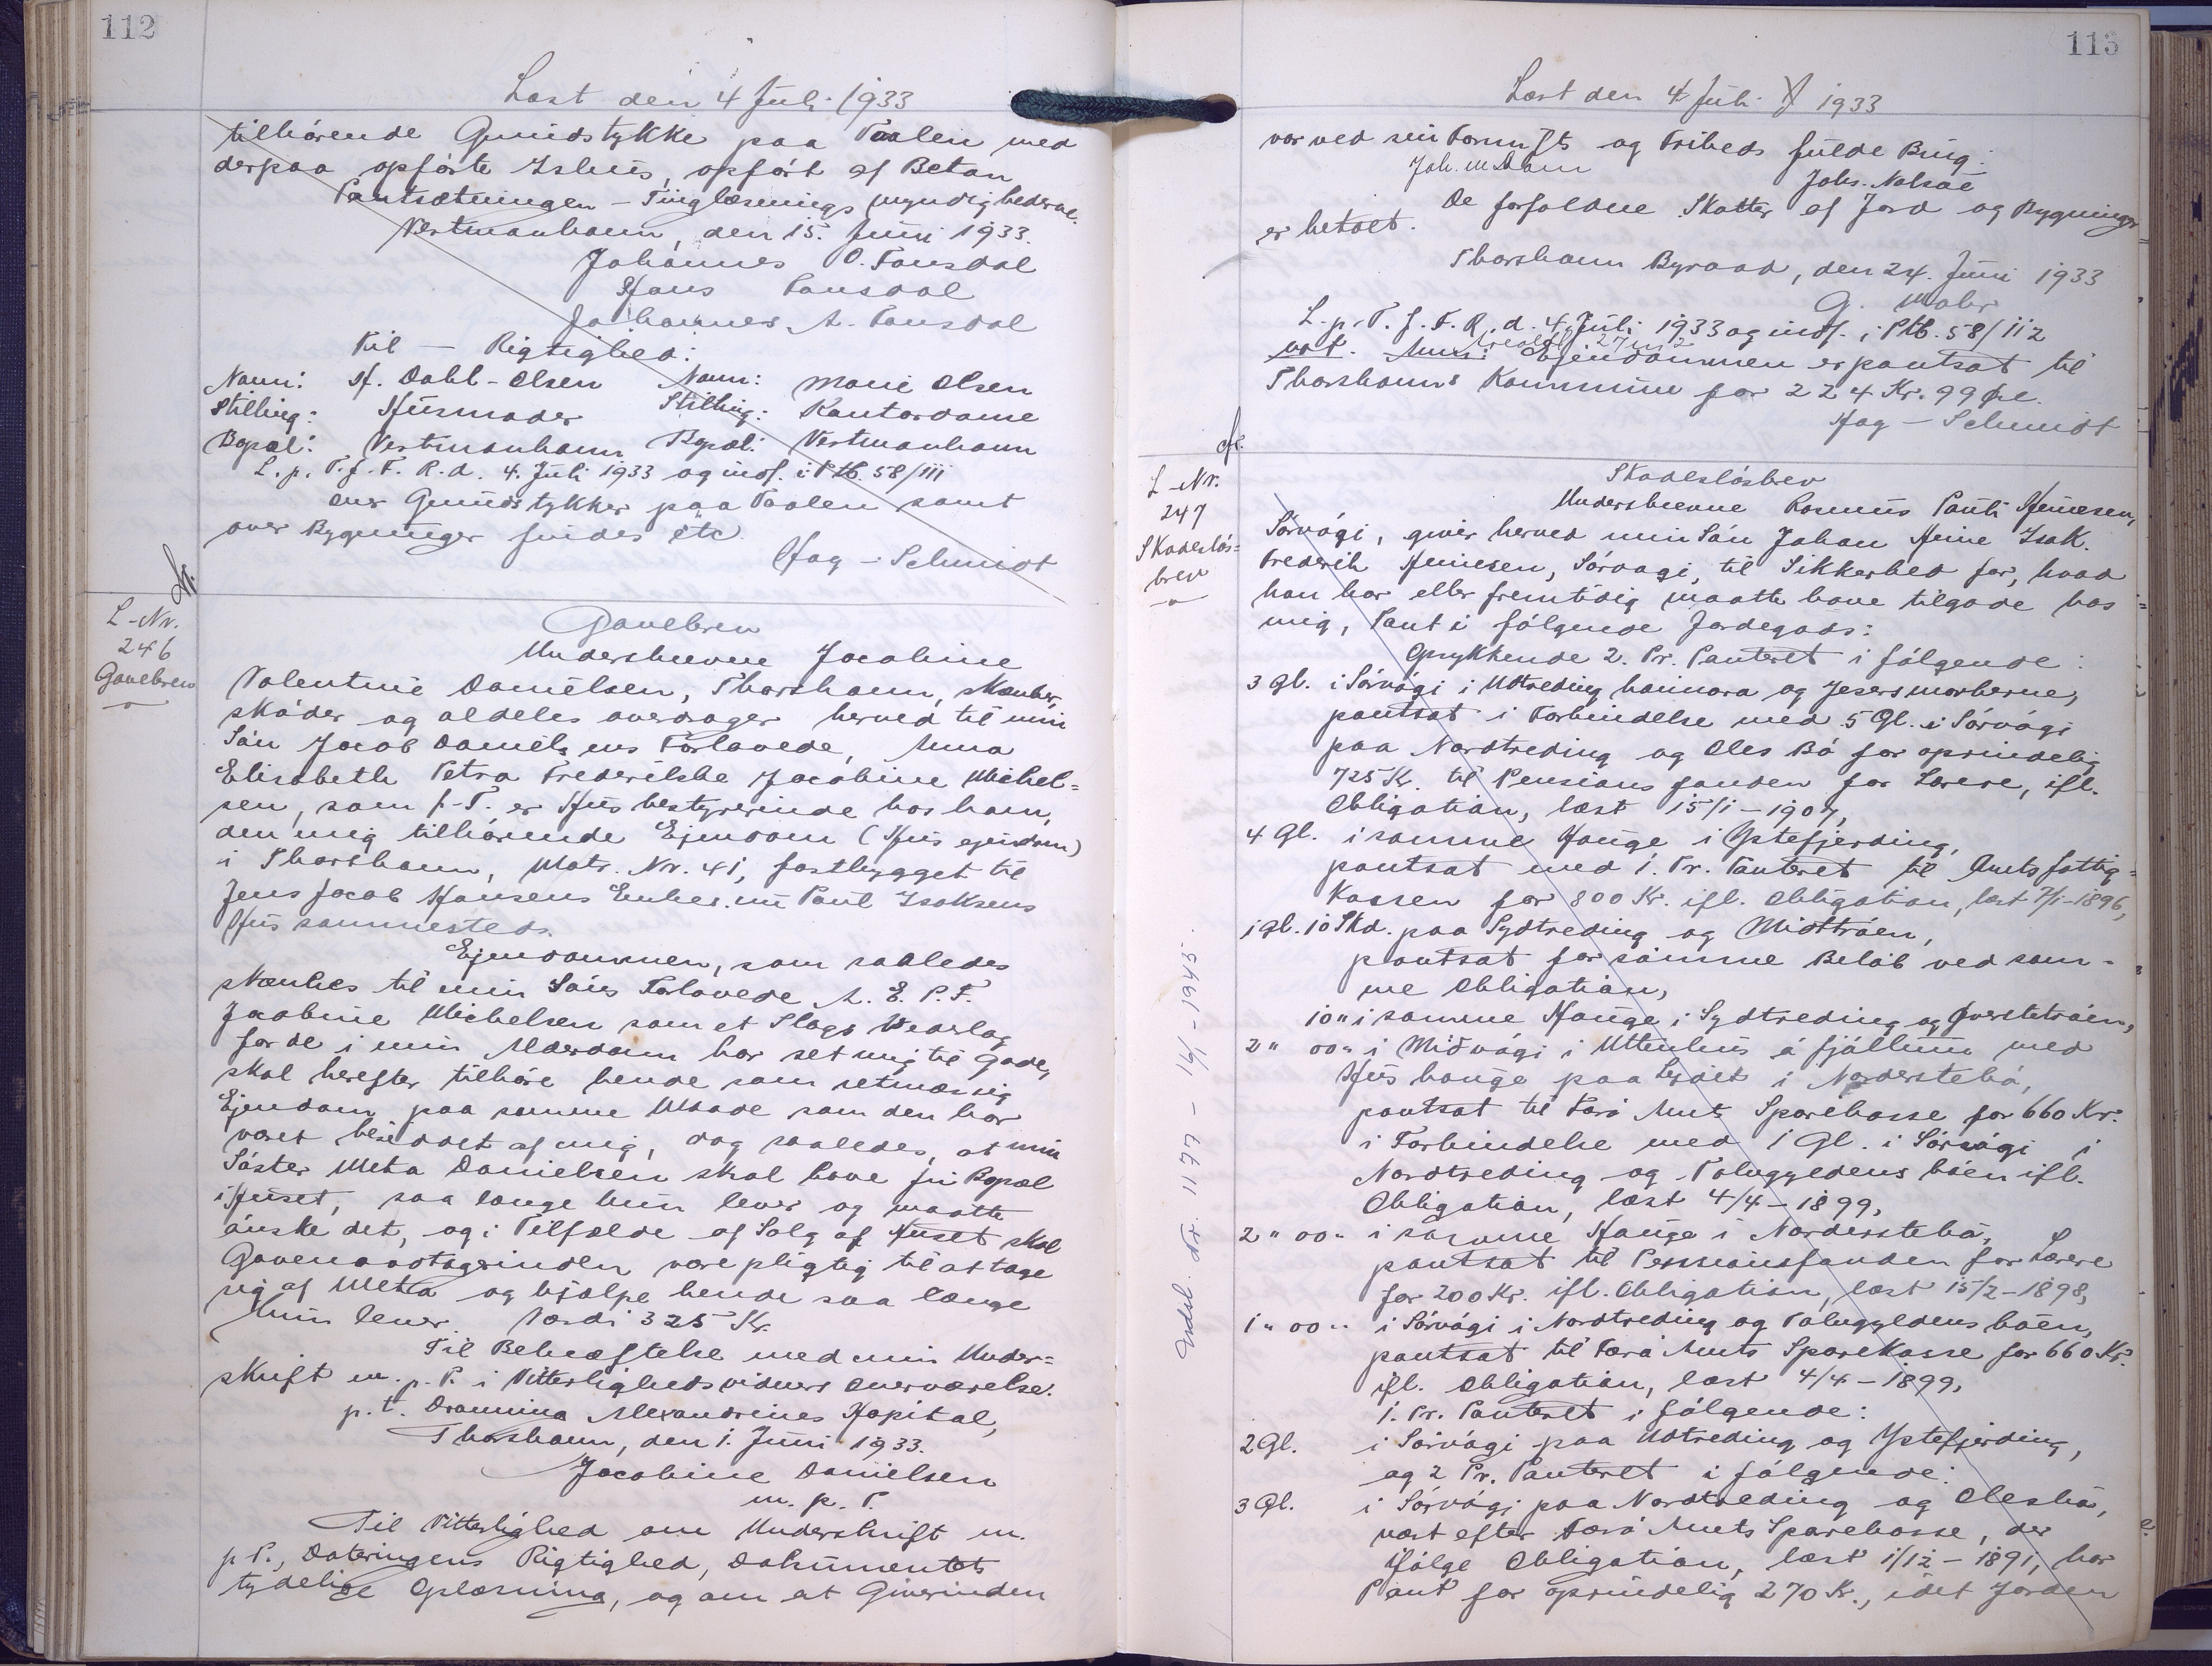 112
Læst den 4 Juli 1933
tilhørende Grundstykke paa Taalen med
derpaa opførte Ishus, opført af Beton
Pantsætningen - Tinglæsnings myndighederne.
Vestmanhavn, den 15. Juni 1933.
Johannes O. Fausdal
Hans Fausdal
Johannes A. Fausdal
Til - Rigtighed:
Navn: H. Dahl-Olsen Navn: Marie Olsen
Stilling: Husmoder Stilling: Kontordame
Bopæl: Vestmanhavn Bopæl: Vestmanhavn
L. p. T. f. F. R. d. 4. Juli 1933 og indf. i Ptb. 58/111
over Grundstykker paa Taalen samt
over Bygninger findes etc
Hag - Schmidt
L-Nr.
246
Gavebrev
Gavebrev
Underskrevne Jacobine
Valentine Danielsen, Thorshavn, skænker,
skøder og aldeles overdrager herved til min
Søn Jacob Daniels ens Forlovede, Anna
Elisabeth Petra Frederikke Jacobine Michel=
sen, som p.T. er Husbestyrerinde hos ham,
den mig tilhørende Ejendom (Hus ejendom)
i Thorshavn, Matr. Nr. 41, fastbygget til
Jens Jacob Hansens Enkes nu Paul Isaksens
Hus sammesteds.
Ejendommen, som saaledes
skænkes til min Søns Forlovede A. E. P. F.
Jacobine Michelsen som et Slags Vederlag
for de i min Alderdom har set mig til Gode,
skal herefter tilhøre hende som retmæssig
Ejendom paa samme Maade som den har
været besiddet af mig, dog saaledes, at min
Søster Meta Danielsen skal have fri Bopæl
i Huset, saa længe hun lever og maatte
ønske det, og i Tilfælde af Salg af Huset skal
Gavemodtagerinden være pligtig til at tage
sig af Meta og hjælpe hende saa længe
hun lever. Værdi 325 Kr.
Til Bekræftelse med min Under=
skrift m. p. P. i Vitterlighedsvidners Overværelse.
p. t. Dronning Alexandrines Hospital,
Thorshavn, den 1. Juni 1933.
Jacobine Danielsen
m. p. P.
Til Vitterlighed om Underskrift m.
p. P., Dateringens Rigtighed, Dokumentets
tydelige Oplæsning, og om at Giverinden
113
Læst den 4 Juli 1933
var ved sin Fornufts og Friheds fulde Brug.
Joh. M Dam Johs. Nolsøe
De forfaldne Skatter af Jord og Bygninger
er betalt.
Thorshavn Byraad, den 24. Juni 1933
G. Mohr
L. p. T. f. F. R. d. 4. Juli 1933 og indf. i Ptb. 58/112
Arealet 27 m2
Ejendommen er pantsat til
Thorshavns Kommune for 224 Kr. 99 Øre.
Hag - Schmidt
L-Nr.
247
Skadesløs=
brev
Skadesløsbrev
Underskrevne Rasmus Pauli Heinesen,
Sørvági, giver herved min Søn Johan Heine Isak
Frederik Heinesen, Sørvági, til Sikkerhed for, hvad
han har eller fremtidig maatte have tilgode hos
mig, Pant i følgende Jordegods:
Oprykkende 2. Pr. Panteret i følgende:
3 Gl. i Sørvági i Udtreding heimara og Jesersmørkerne,
pantsat i Forbindelse med 5 Gl. i Sørvági
paa Nordtreding og Oles Bø for oprindelig
725 Kr. til Pensionsfonden for Lærere, ifl.
Obligation, læst 15/1-1907,
4 Gl. i samme Hauge i Ystefjerding,
pantsat med 1. Pr. Panteret til Amtsfattig=
kassen for 800 Kr. ifl. Obligation, læst 7/1-1896,
1 Gl. 10 Skd. paa Sydtreding og Midttrøen,
pantsat for samme Beløb ved sam-
me Obligation,
10 " i samme Hauge i Sydtreding og Øverstetrøen,
2 " 00 " i Miðvági i Uttenhus á fjøllum med
Hus hauge paa i Nordersteбø,
pantsat til Færø Amts Sparekasse for 660 Kr.
i Forbindelse med 1 Gl. i Sørvági i
Nordtreding og Tolvgyldens bøen ifl.
Obligation, læst 4/4-1899,
2 " 00 " i samme Hauge i Nordersteбø,
pantsat til Pensionsfonden for Lærere
for 200 Kr. ifl. Obligation, læst 15/2-1898,
1 " 00 " i Sørvági i Nordtreding og Tolvgyldens bøen,
pantsat til Færø Amts Sparekasse for 660 Kr.
ifl. Obligation, læst 4/4-1899,
1. Pr. Panteret i følgende:
2 Gl. i Sørvági paa Udtreding og Ystefjerding,
og 2 Pr. Panteret i følgende:
3 Gl. i Sørvági paa Nordtreding og Olesbø,
næst efter Færø Amts Sparekasse, der
ifølge Obligation, læst 1/12-1891, har
Pant for oprindelig 270 Kr., idet Jorden
Udsl. Nr. 1177 - 16/-1945.